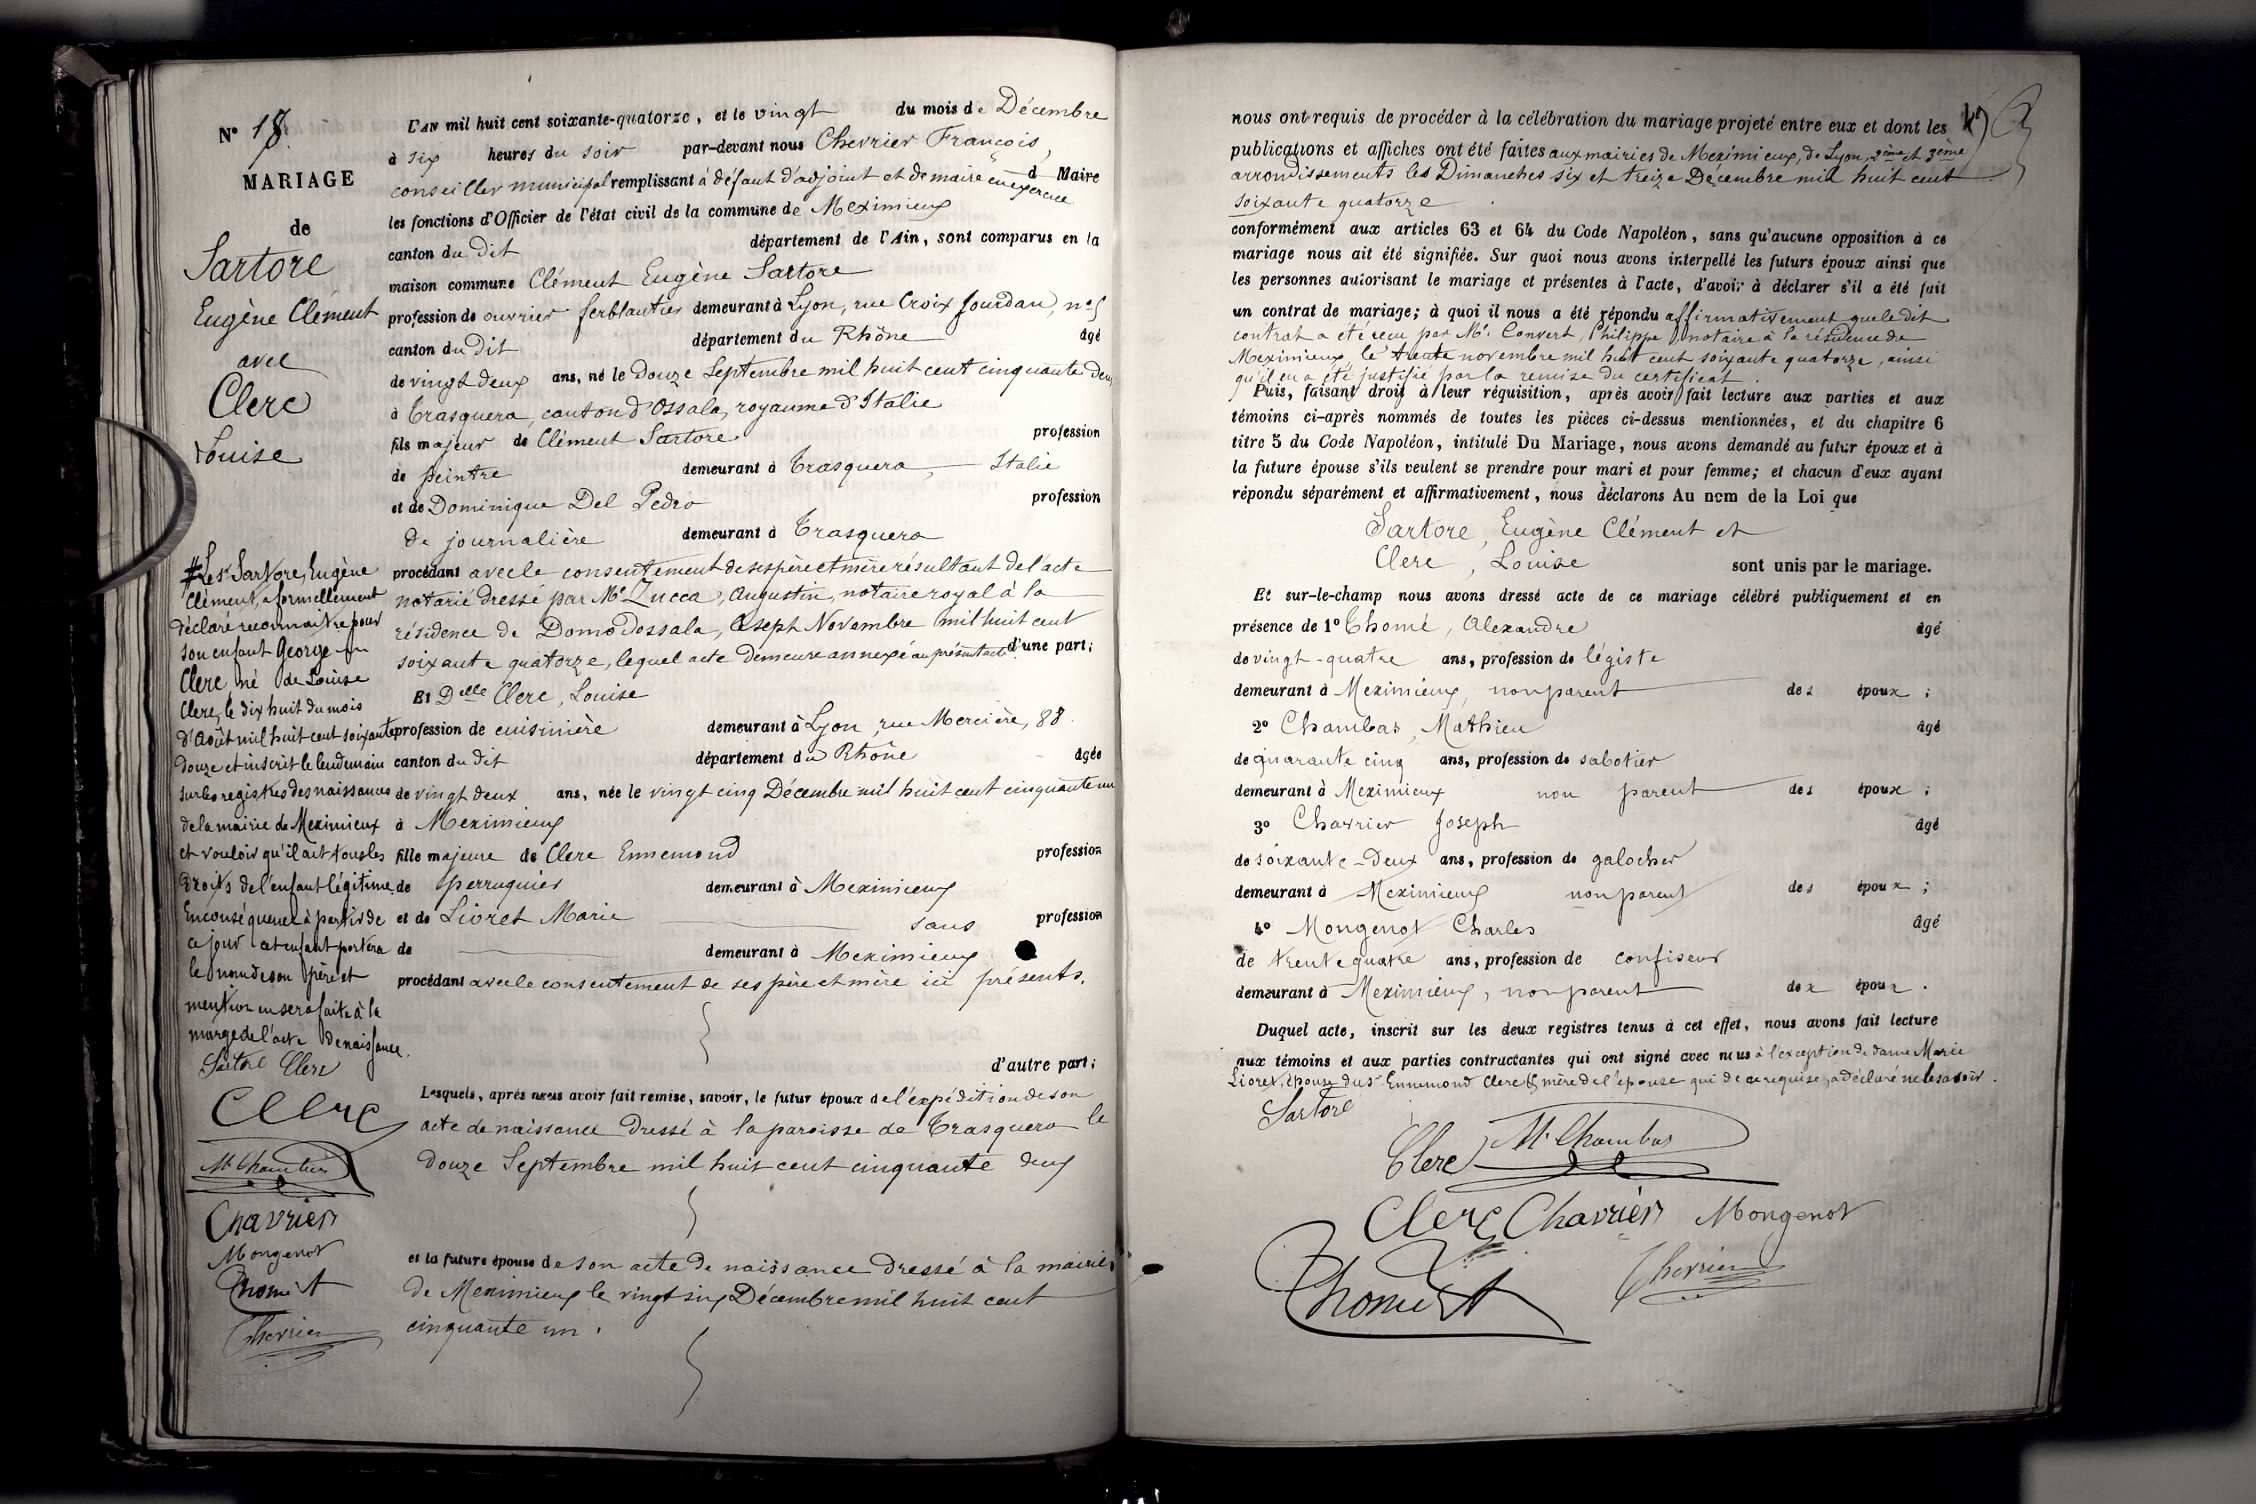 N° 18
MARIAGE
de
Sartore
Eugène Clément
avec
Clerc
Louise
# Le sr Sartore, Eugène
Clément, a formellement
déclaré reconnaitre pour
son enfant George
Clerc né de Louise
Clerc, le dix huit du mois
d'Août mil huit cent soixante
douze et inscrit le lendemain
sur les registres des naissances
de la mairie de Meximieux
et vouloir qu'il ait tous les
droits de l'enfant légitime.
En conséquence à partir de
ce jour cet enfant portera
le nom de son père et
mention en sera faite à la
marge de l'acte de naissance.
Sartore Clerc
Clerc
Mt Chambas
Chavrier
Mongenot
Thomé A
Chevrier
L'AN mil huit cent soixante-quatorze, et le vingt du mois de Décembre
à six heures du soir par-devant nous Chevrier François,
conseiller municipal remplissant à défaut d'adjoint et de maire en exercice d Maire
les fonctions d'Officier de l'état civil de la commune de Meximieux
canton du dit département de l'Ain, sont comparus en la
maison commune Clément Eugène Sartore
profession de ouvrier ferblantier demeurant à Lyon, rue Croix Jourdan, n° 5
canton du dit département du Rhône âgé
de vingt deux ans, né le douze Septembre mil huit cent cinquante deux
à Trasquera, canton d'Ossala, royaume d'Italie
fils majeur de Clément Sartore profession
de peintre demeurant à Trasquera, Italie
et de Dominique Del Pedro profession
de journalière demeurant à Trasquera
procédant avec le consentement de ses père et mère résultant de l'acte
notarié dressé par Me Zucca, Augustin, notaire royal à la
résidence de Domo Dossala, le sept Novembre mil huit cent
soixante quatorze, lequel acte demeure annexé au présent acte d'une part;
Et Delle Clerc, Louise
profession de cuisinière demeurant à Lyon, rue Mercière, 88.
canton du dit département du Rhône âgée
de vingt deux ans, née le vingt cinq Décembre mil huit cent cinquante un
à Meximieux
fille majeure de Clerc Ennemond profession
de perruquier demeurant à Meximieux
et de Livret Marie sans profession
de demeurant à Meximieux
procédant avec le consentement de ses père et mère ici présents.
d'autre part;
Lesquels, après nous avoir fait remise, savoir, le futur époux de l'expédition de son
acte de naissance dressé à la paroisse de Trasquera le
douze Septembre mil huit cent cinquante deux
et la future épouse de son acte de naissance dressé à la mairie
de Meximieux le vingt six Décembre mil huit cent
cinquante un.
nous ont requis de procéder à la célébration du mariage projeté entre eux et dont les
publications et affiches ont été faites aux mairies de Meximieux, de Lyon, 2ème et 3ème
arrondissements les Dimanches six et treize Décembre mil huit cent
soixante quatorze
conformément aux articles 63 et 64 du Code Napoléon, sans qu'aucune opposition à ce
mariage nous ait été signifiée. Sur quoi nous avons interpellé les futurs époux ainsi que
les personnes autorisant le mariage et présentes à l'acte, d'avoir à déclarer s'il a été fait
un contrat de mariage; à quoi il nous a été répondu affirmativement que le dit
contrat a été reçu par Me Convert, Philippe, notaire à la résidence de
Meximieux, le trente novembre mil huit cent soixante quatorze, ainsi
qu'il en a été justifié par la remise du certificat.
Puis, faisant droit à leur réquisition, après avoir fait lecture aux parties et aux
témoins ci-après nommés de toutes les pièces ci-dessus mentionnées, et du chapitre 6
titre 5 du Code Napoléon, intitulé Du Mariage, nous avons demandé au futur époux et à
la future épouse s'ils veulent se prendre pour mari et pour femme; et chacun d'eux ayant
répondu séparément et affirmativement, nous déclarons Au nom de la Loi que
Sartore, Eugène Clément et
Clerc, Louise sont unis par le mariage.
Et sur-le-champ nous avons dressé acte de ce mariage célébré publiquement et en
présence de 1° Thomé, Alexandre âgé
de vingt-quatre ans, profession de légiste
demeurant à Meximieux, non parent des époux;
2° Chambas, Mathieu âgé
de quarante cinq ans, profession de sabotier
demeurant à Meximieux non parent des époux;
3° Chavrier Joseph âgé
de soixante-deux ans, profession de galocher
demeurant à Meximieux non parent des époux;
4° Mongenot Charles âgé
de trente quatre ans, profession de confiseur
demeurant à Meximieux, non parent des époux.
Duquel acte, inscrit sur les deux registres tenus à cet effet, nous avons fait lecture
aux témoins et aux parties contractantes qui ont signé avec nous à l'exception de dame Marie
Livret, épouse du sr Ennemond Clerc et mère de l'épouse qui de ce requise, a déclaré ne le savoir.
Sartore
Clerc Mt Chambas
Clerc Chavrier Mongenot
Thomé A Chevrier